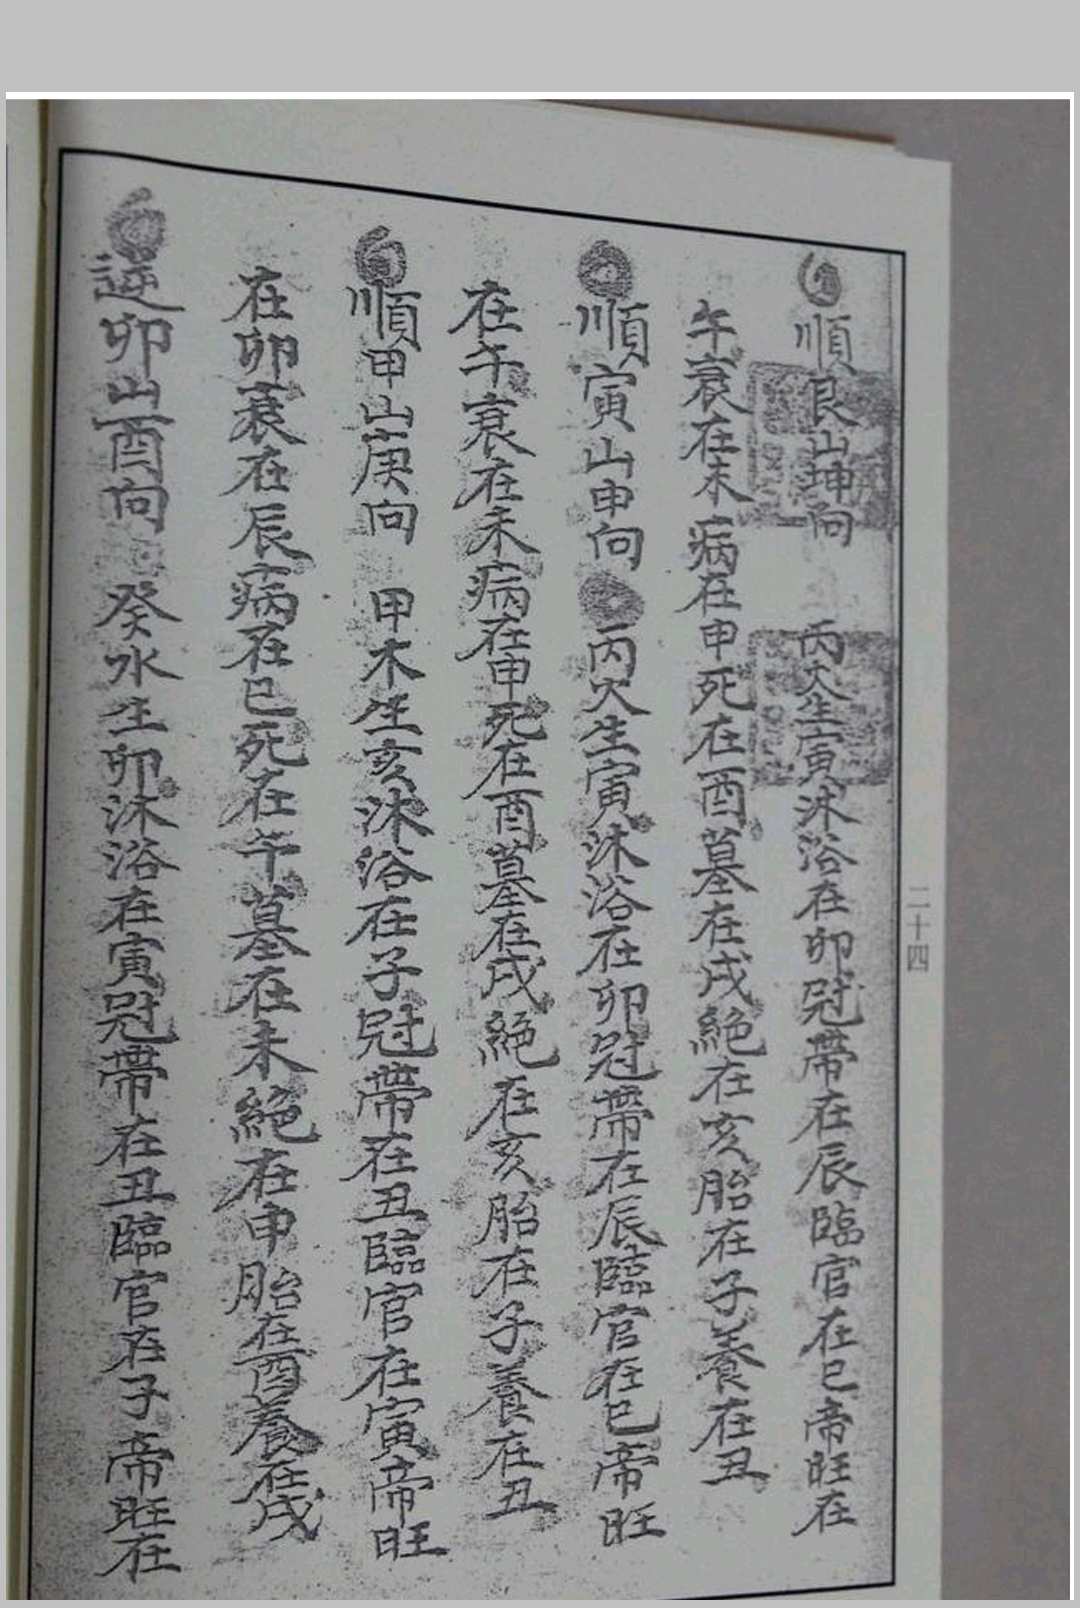 二十四
順艮山坤向 丙火生寅沐浴在卯冠帶在辰臨官在巳帝旺在
午衰在未病在申死在酉墓在戌絕在亥胎在子養在丑
順寅山申向 丙火生寅沐浴在卯冠帶在辰臨官在巳帝旺
在午衰在未病在申死在酉墓在戌絕在亥胎在子養在丑
順甲山庚向 甲木生亥沐浴在子冠帶在丑臨官在寅帝旺
在卯衰在辰病在巳死在午墓在未絕在申胎在酉養在戌
逆卯山酉向 癸水生卯沐浴在寅冠帶在丑臨官在子帝旺在